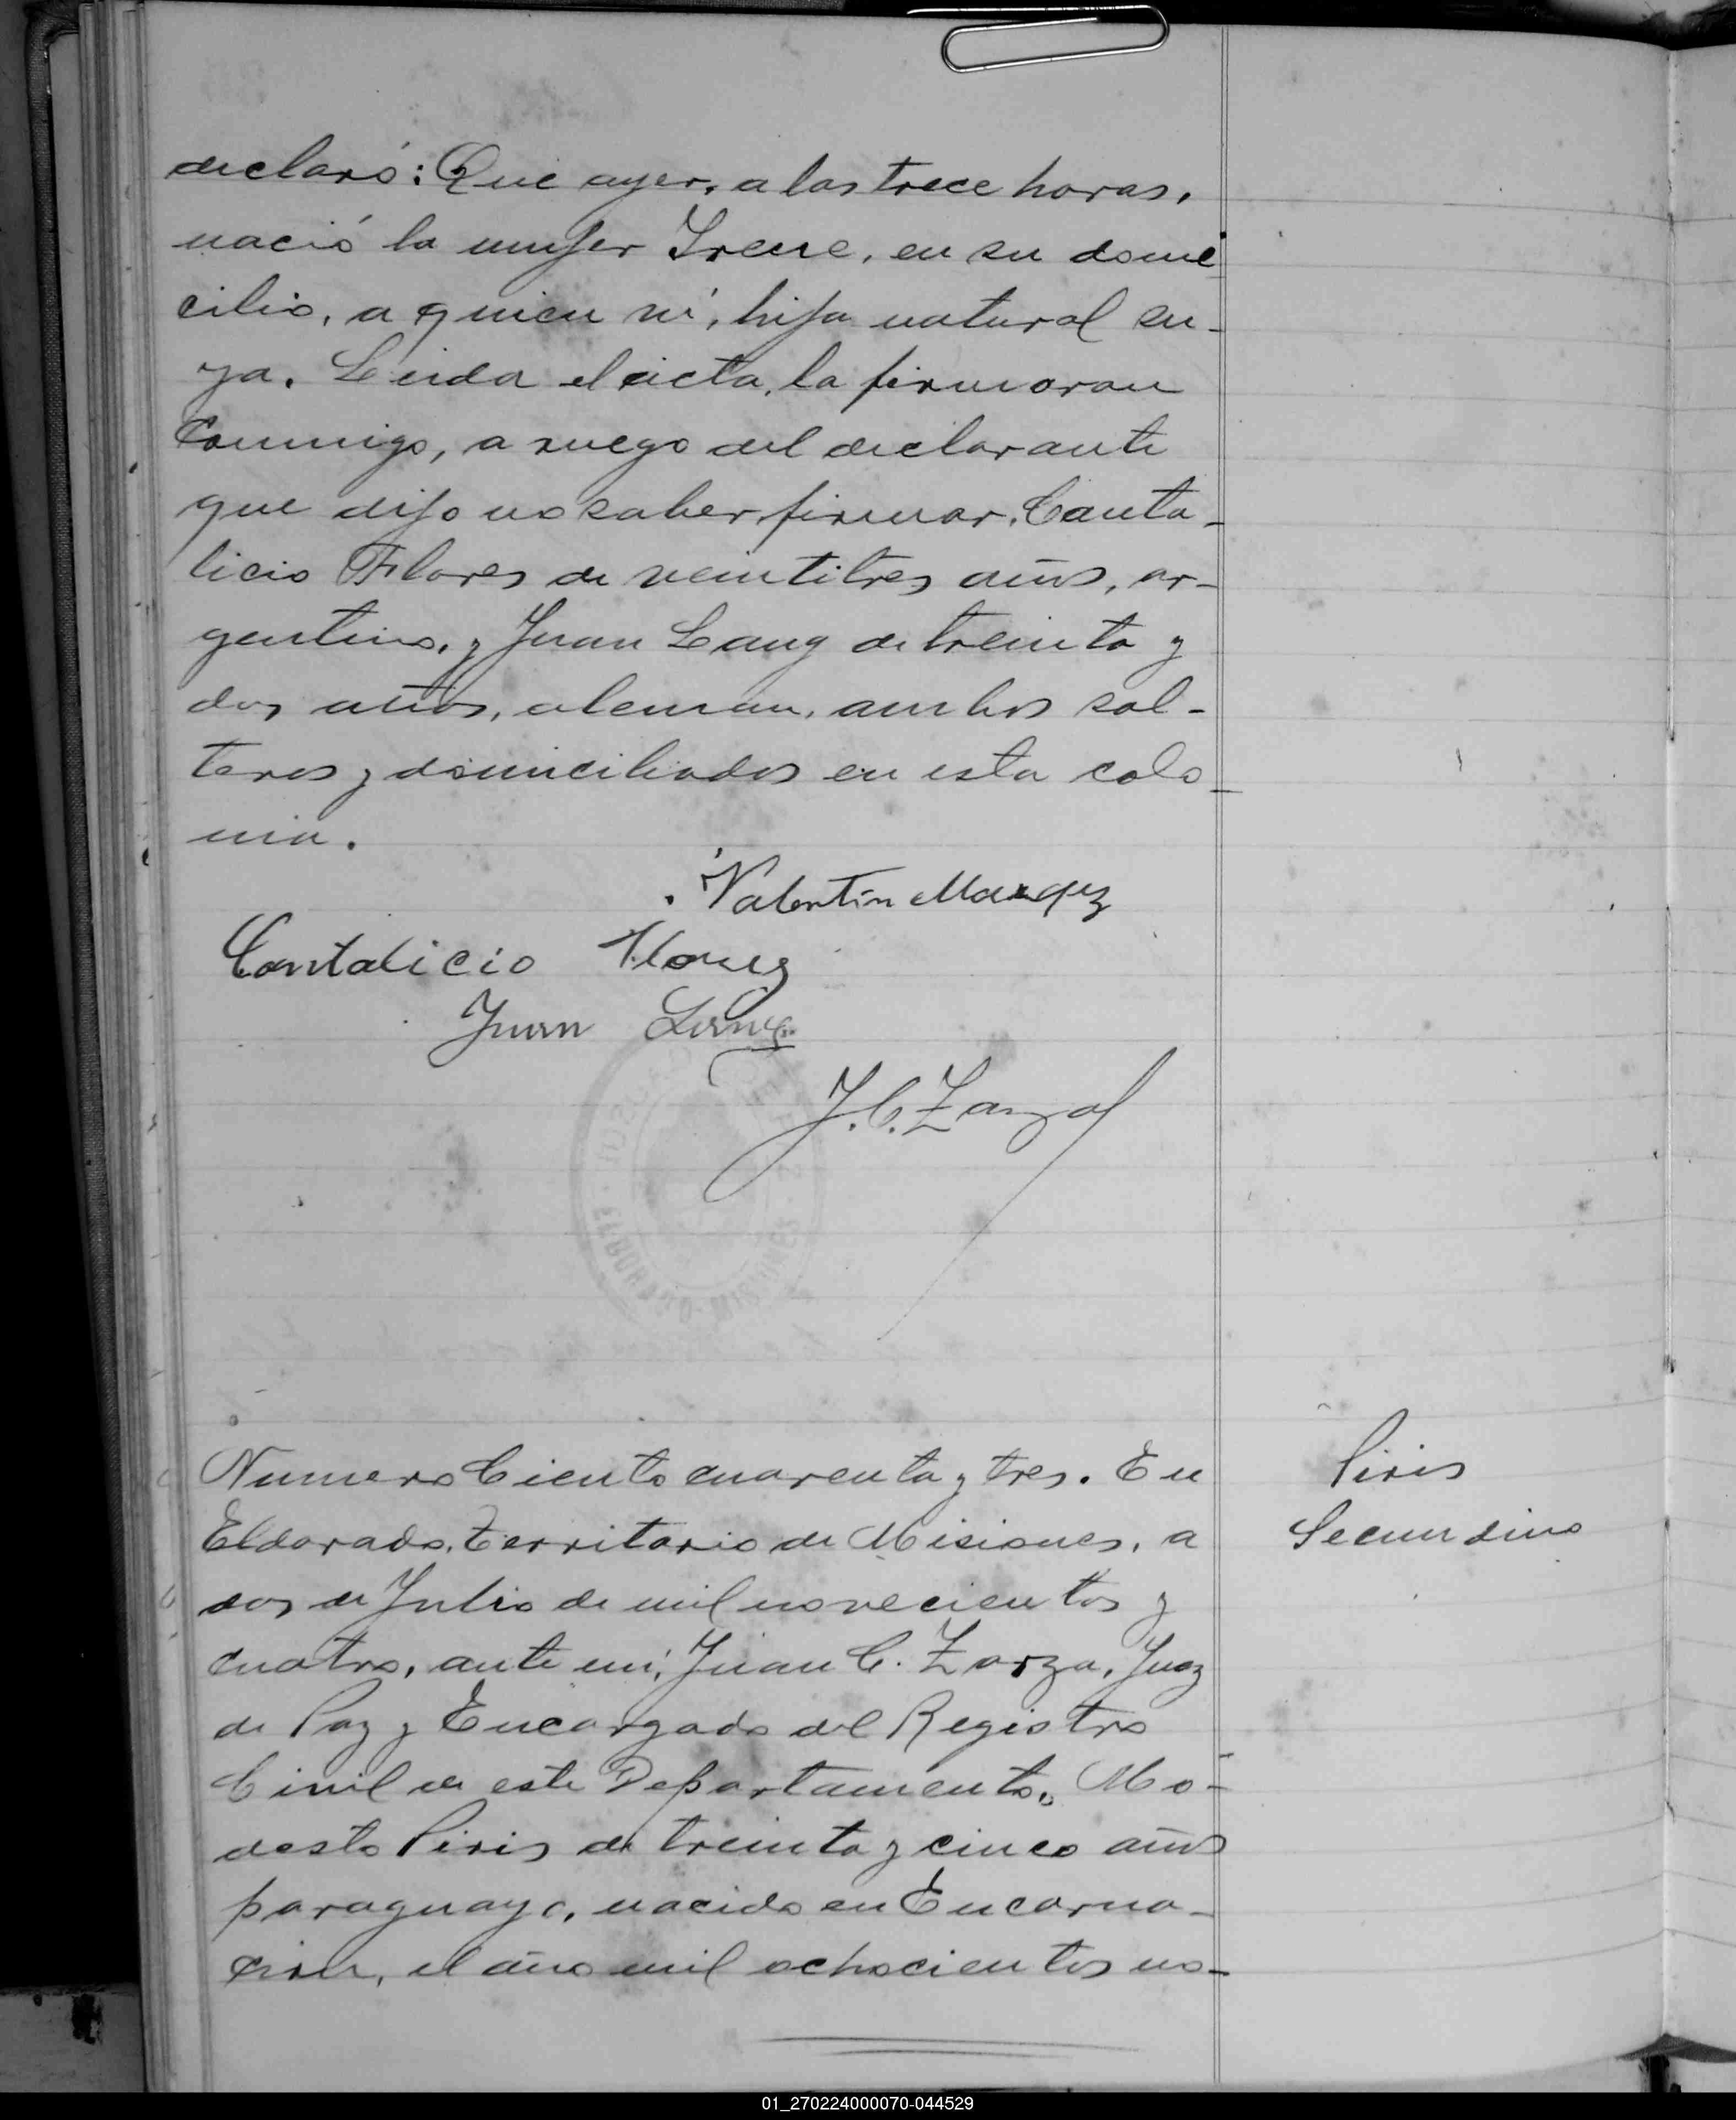 declaró: Que ayer, a las trece horas,
nació la mujer Irene, en su domi
cilio, a quien ví, hija natural su-
ya. Leida el acta, la firmaran
conmigo, a ruego del declarante
que dijo no saber firmar, Canta-
licio Flores de veintitres años, ar-
gentino, y Juan Lang de treinta y
dos años, aleman, ambos sol-
teros y domiciliados en esta colo
nia.
Valentín Marquez
Cantalicio Flores
Juan Lang
J. C. Zarza
Piris
Secundino
Numero Ciento cuarenta y tres. En
Eldorado, Territorio de Misiones, a
dos de Julio de mil novecientos y
cuatro, ante mí, Juan C. Zarza, Juez
de Paz y Encargado del Registro
Civil de este Departamento, Mo-
desto Piris de treinta y cinco años
paraguayo, nacido en Encarna-
cion, el año mil ochocientos no-
01_270224000070-044529